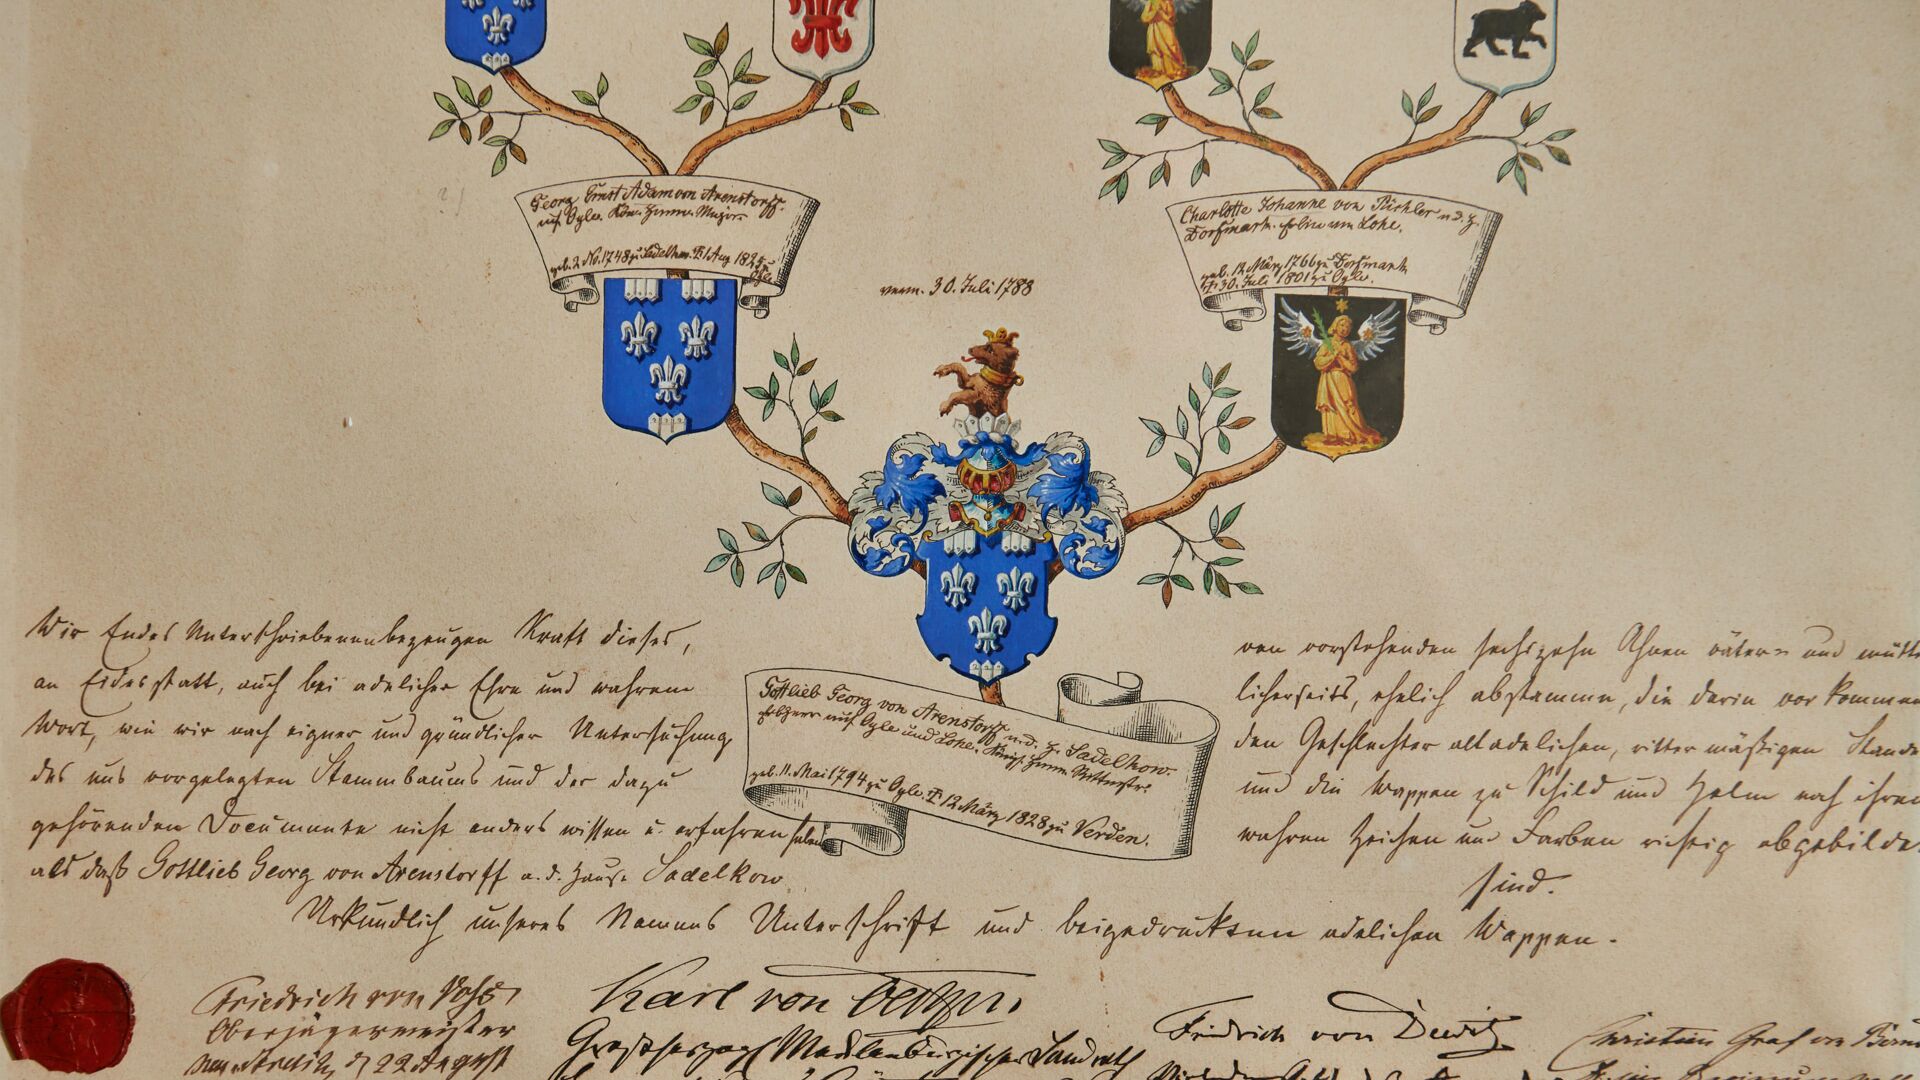 Georg Ernst Adam von Arenstorff
auf Oyle. Kön. Hannov. Major.
geb. 2. No. 1748 zu Sadelkow. † 1 Aug 182
Charlotte Johanne von Püchler a. d. H.
Dorfmark. Erbin von Lohe.
geb. 12 März 1766 zu Dorfmark
† 30. Juli 1801 zu Oyle.
verm. 30. Juli 1788
Gottlieb Georg von Arenstorff a. d. H. Sadelkow.
Erbherr auf Oyle und Lohe.
geb. 11. Mai 1794 zu Oyle. † 12 März 1828 zu Verden.
Wir Endes Unterschriebenen bezeugen Kraft dieses,
an Eides statt, auch bei adelicher Ehre und wahrem
Wort, wie wir nach eigner und gründlicher Untersuchung
des uns vorgelegten Stammbaums und der dazu
gehörenden Documente nicht anders wissen u. erfahren haben
als daß Gottlieb Georg von Arenstorff a. d. Hause Sadelkow
von vorstehenden sechszehn Ahnen väter= und mütte
licherseits, ehelich abstamme, die darin vorkommen
den Geschlechter altadelichen, rittermäßigen Stande
und die Wappen zu Schild und Helm nach ihren
wahren Zeichen und Farben richtig abgebildet
sind.
Urkundlich unseres Namens Unterschrift und beigedruckten adelichen Wappen.
Friedrich von Voß
Oberjägermeister
22 August
Karl von Oertzen.
Großherzogl Mecklenburgischer Landrath
Fridrich von Dewitz
Christian Graf von